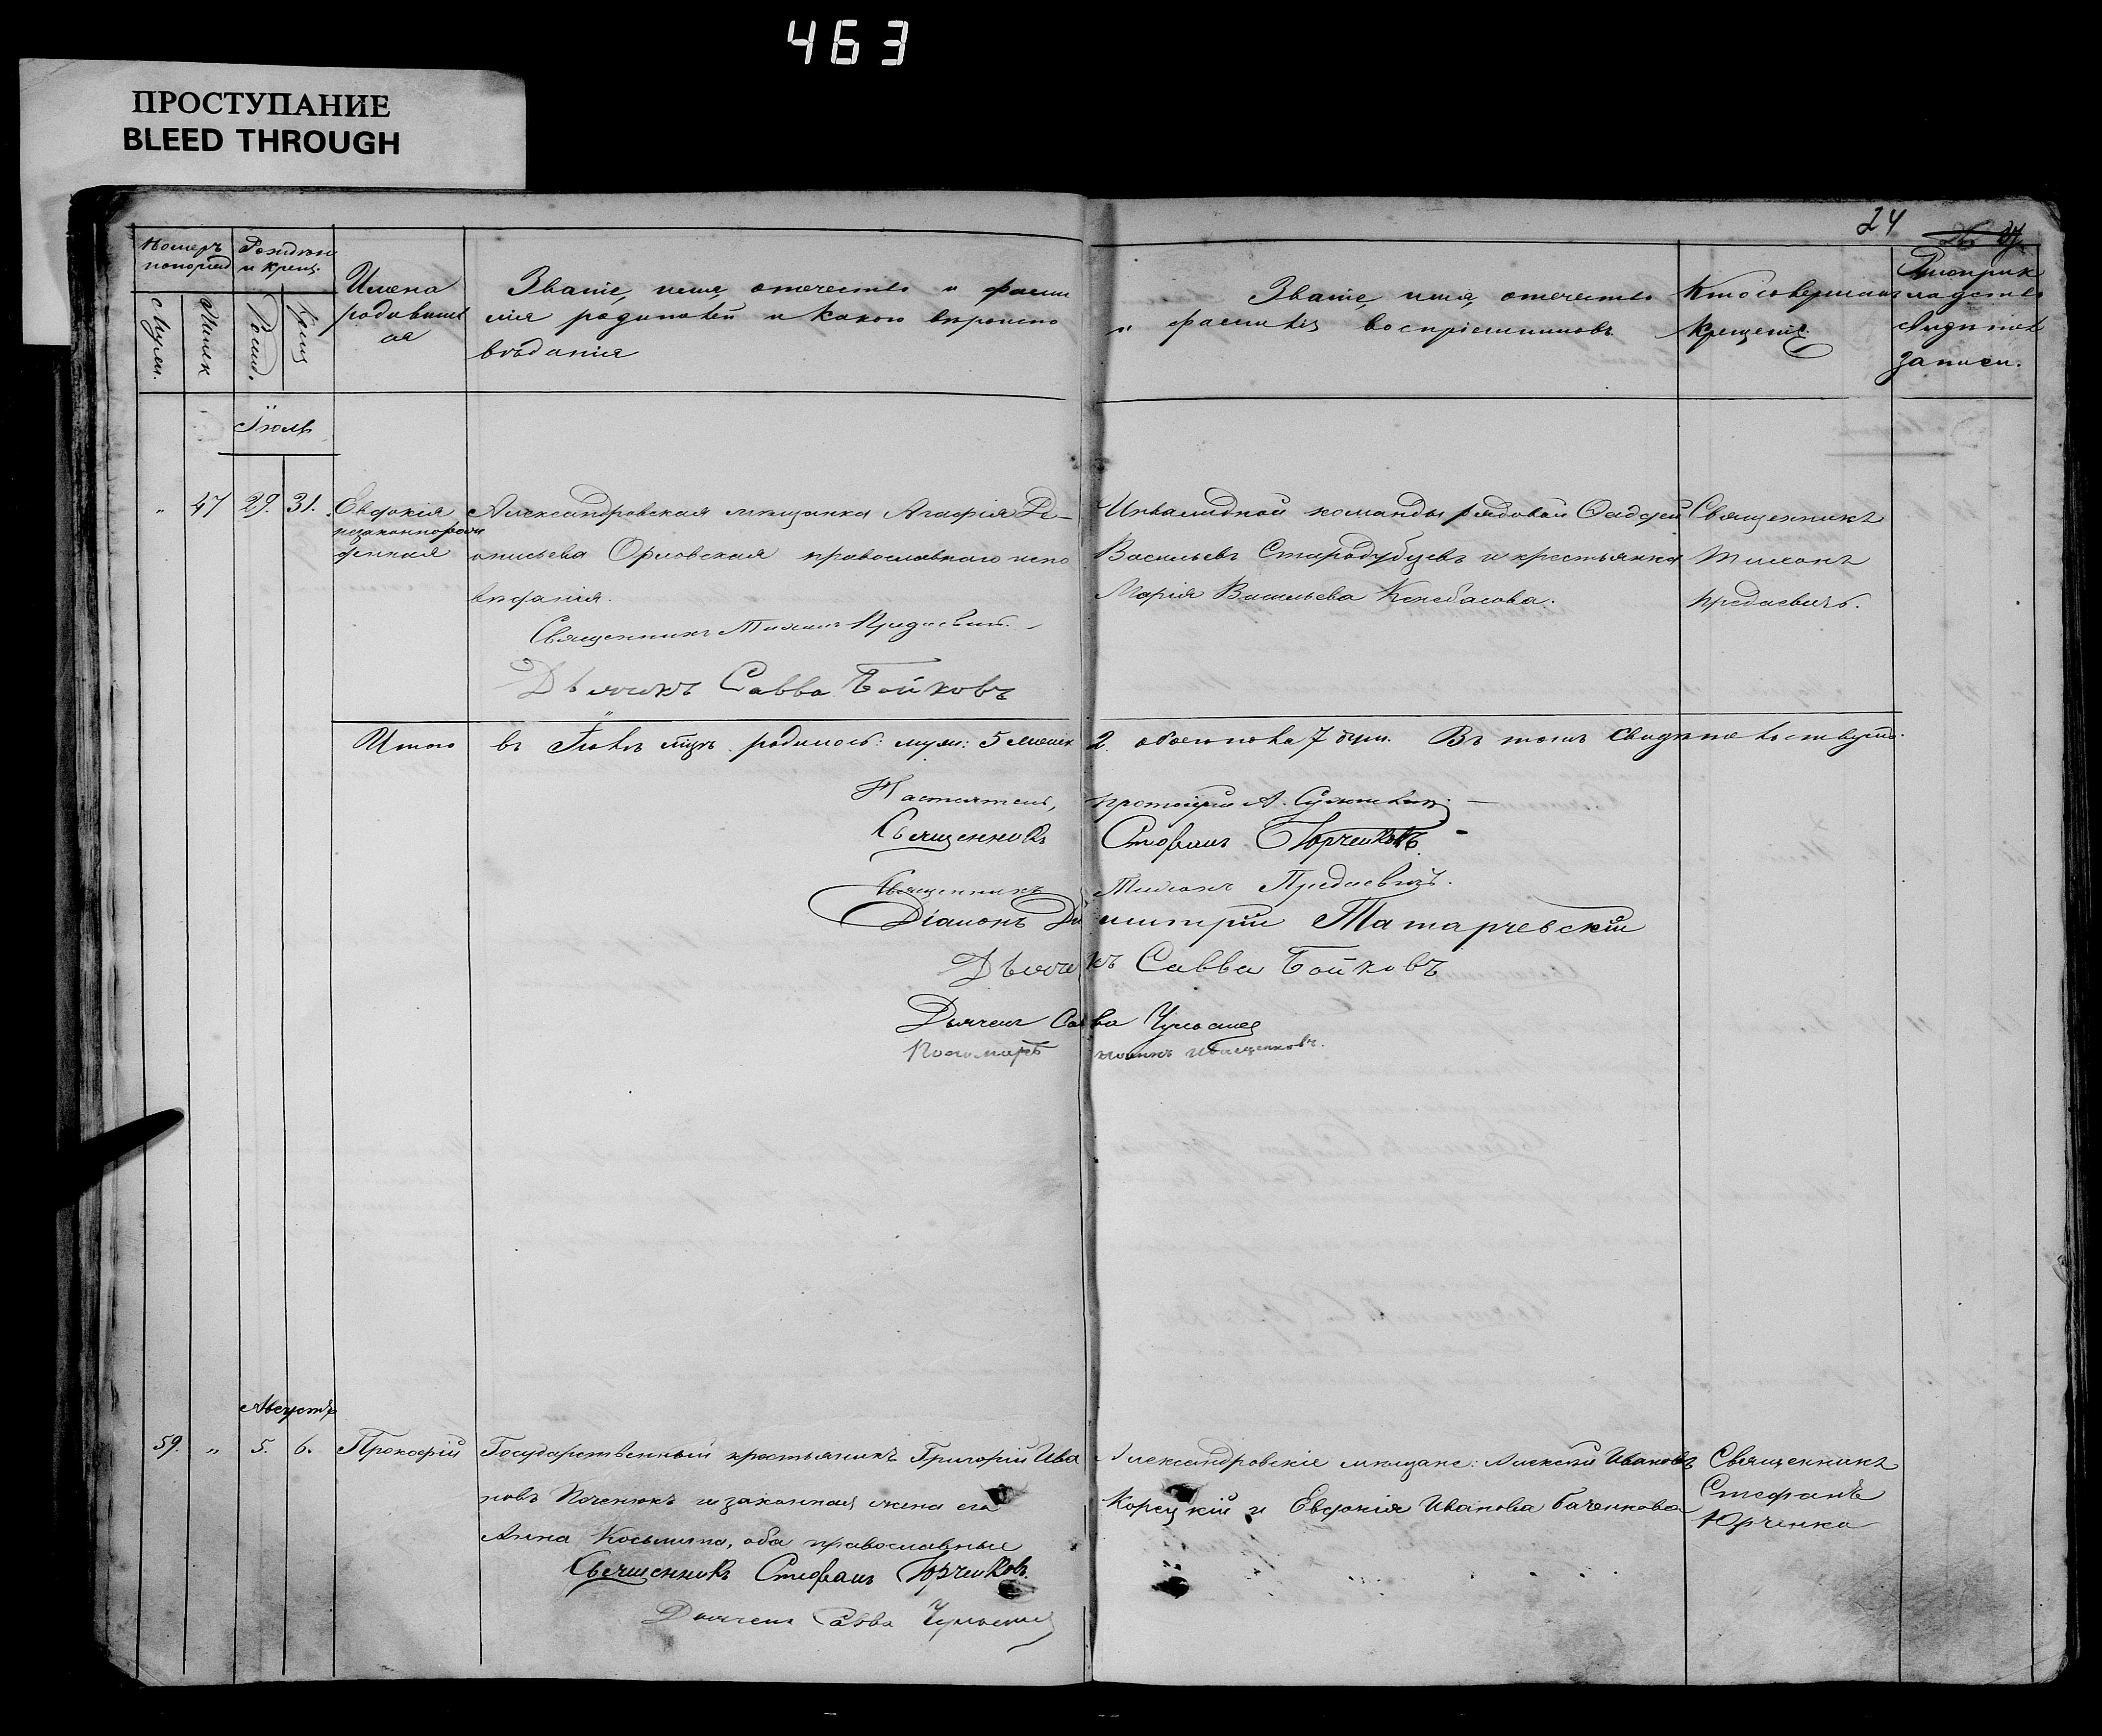 463
ПРОСТУПАНИЕ
BLEED THROUGH
24
Номеръ
Рожденія
и крещ.
Имена
родивших
ся
Званіе, имя, отечество и фами
лія родителей и какого вѣроиспо
вѣданія
Званіе, имя, отечество
и фамилія воспріемниковъ
Кто совершалъ
крещеніе
записи.
Муж.
Женск
Рожд.
Крещ
Іюль
" 47 29. 31. Евдокія
незаконнорож
денная
Александровская мѣщанка Агафія Де-
онисьева Орловская православнаго испо
вѣданія.
Священникъ Тихонъ Придаевичъ.
Дьячокъ Савва Бойковъ
Инвалидной команды рядовой Фадей
Васильевъ Стародубцевъ и крестьянка
Марія Васильева
Священникъ
Тихонъ
Придаевичъ.
Итого въ Іюлѣ мцѣ родилось: муж: 5 женск 2. обоего пола 7 душ. Въ томъ свидѣтельствуютъ.
Настоятель, протоіерей А.
Священникъ Стефанъ Юрченковъ.
Священникъ Тихонъ Придаевичъ.
Діаконъ Димитрій Татарчевскій
Дьячокъ Савва Бойковъ
Дьячекъ Савва
Пономарь Иоаннъ Иващенковъ.
Августъ
59. " 5. 6. Прокофій
Государственный крестьянинъ Григорій Ива
новъ и законная жена его
Анна Косьмина, оба православные
Священникъ Стефанъ Юрченковъ.
Дьячекъ Савва
Александровскіе мѣщане: Алексѣй Ивановъ
Корецкій и Евдокія Иванова Баченкова
Священникъ
Стефанъ
Юрченко